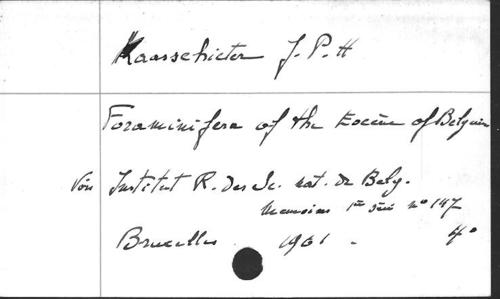 Kaasschieter J. P. H
Foraminifera of the Eocène of Belgium
Voir Institut R. des Sc. nat. de Belg.
Memoires 1re série no 147
Bruxelles 1961 - 4o